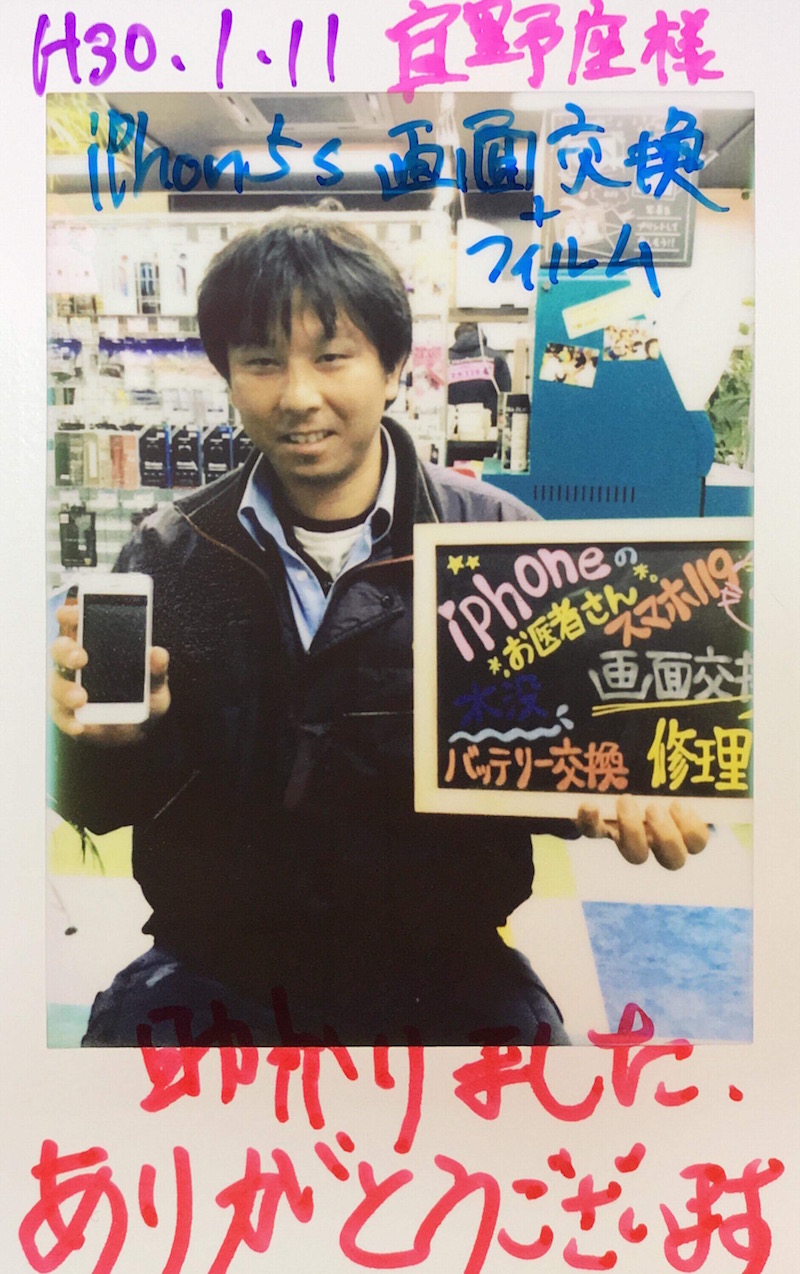 H30.1.11 宜野座様
iPhon5s 画面交換
+
フィルム
iphoneの
お医者さん
スマホ119
水没
画面交換
バッテリー交換
修理
助かりました、
ありがとうございます